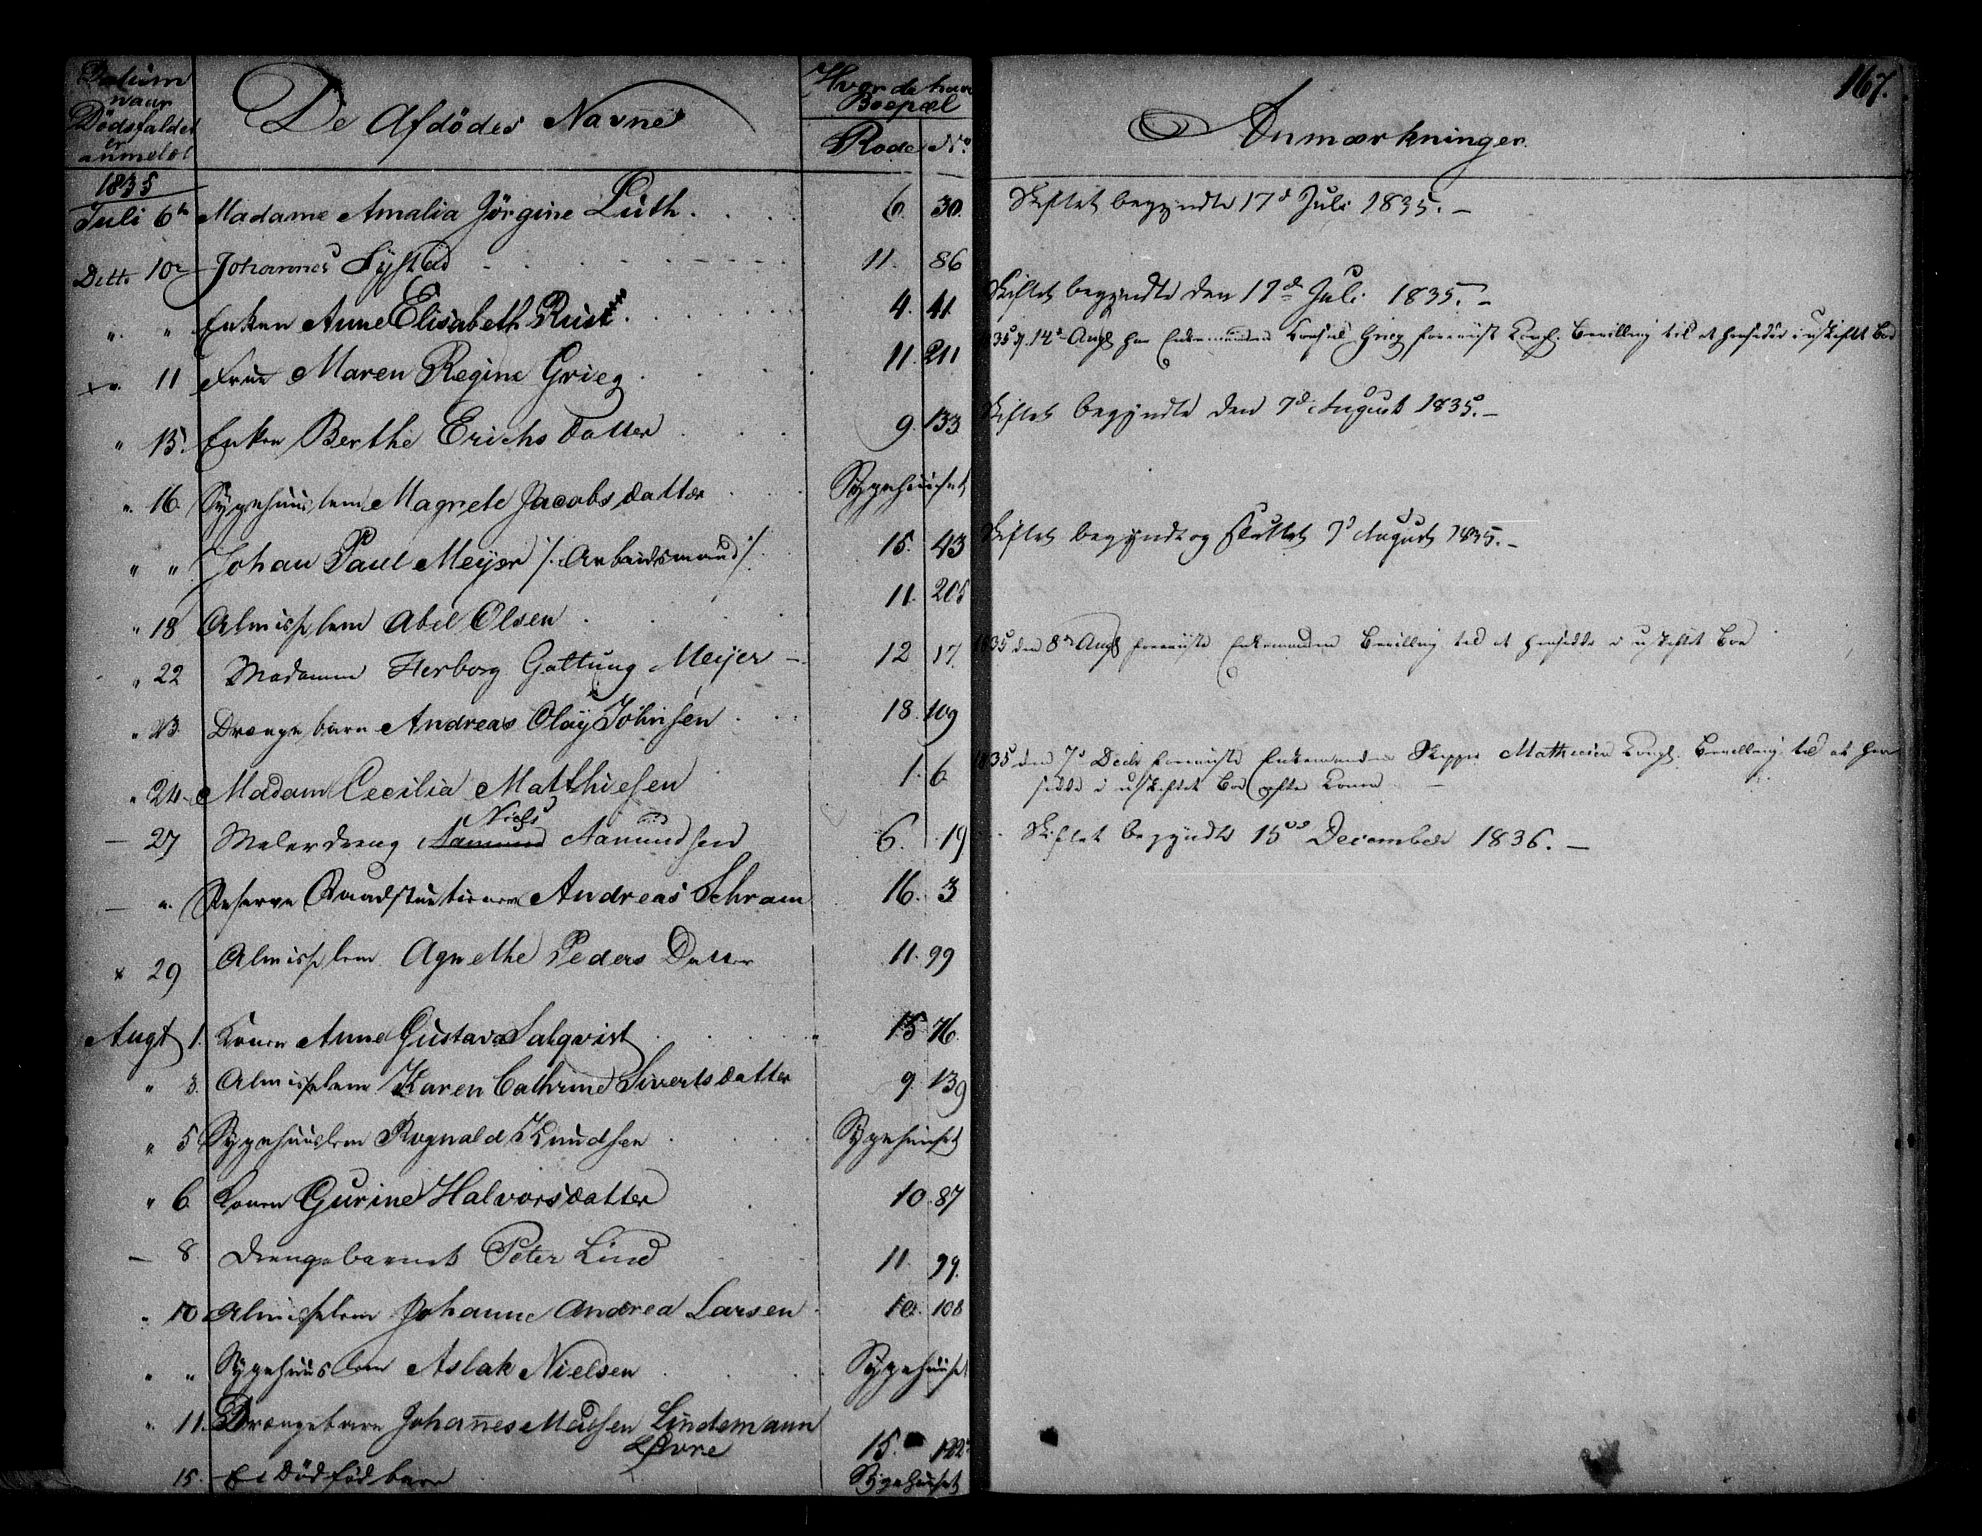 Datum
naar
Dødsfaldet
er
anmeldt
De Afdødes Navne
Hvor de have
Boepæl
Rode No
Anmærkninger.
167.
1835
Juli 6te Madame Amalia Jörgine Lüth. 6. 30. Skiftet begyndte 17d Juli 1835.-
Ditto 10 Johannes Systad 11. 86
" " Enken Anne Elisabeth Rust. 4. 41. Skiftet begyndte den 17de Juli 1835.-
" 11 Frue Maren Regine Grieg 11. 211 1835 d 14de Augt har Enkemanden Consul Grieg foreviist Kongl. Bevilling til at hensidde i uskiftet Boe
" 15. Enken Berthe Erichsdatter 9. 133 Skiftet begyndte den 7d August 1835.-
" 16. Sygehuuslem Magrete Jacobsdatter Sygehuuset
" " Johan Paul Meyer /: Arbeidsmand :/ 15. 43 Skiftet begyndt og sluttet 7d August 1835.-
" 18 Almisselem Abel Olsen 11. 205
" 22 Madamme Herborg Gattung Meijer - 12 17. 1835 den 8de Augt foreviiste Enkemanden Bevilling til at hensidde i uskiftet Boe
" 23. Drengebarn Andreas Olay Johnsen 18. 109
" 24. Madam Cecilia Matthiesen 1. 6 1835 den 7de Decbr foreviiste Enkemanden Skipper Mathiesen Kongl. Bevilling til at hen
sidde i uskiftet Boe efter Konen
Niels
- 27 Malerdreng Aamund Aamundsen 6. 19 Skiftet begyndte 15de December 1836.-
- " Reserve Brandstuetienere Andreas Schram 16. 3
" 29 Almisselem Agnethe Peders Datter 11. 99
Augt 1. Konen Anne Gustava Salqvist 15 76.
" 3. Almisselem Karen Cathrine Sivertsdatter 9. 139
" 5 Sygehuuslem Rognald Knudsen Sygehuuset
" 6 Konen Gurine Halvorsdatter 10. 87
- 8. Drengebarnet Peter Lind 11. 99.
" 10 Almisselem Johanne Andrea Larsen 10. 108
" " Sygehuuslem Aslak Nielsen Sygehuuset
" 11. Drengebarn Johannes Madsen Lindemann
15. 122
15. Et Død fød barn Sygehuuset